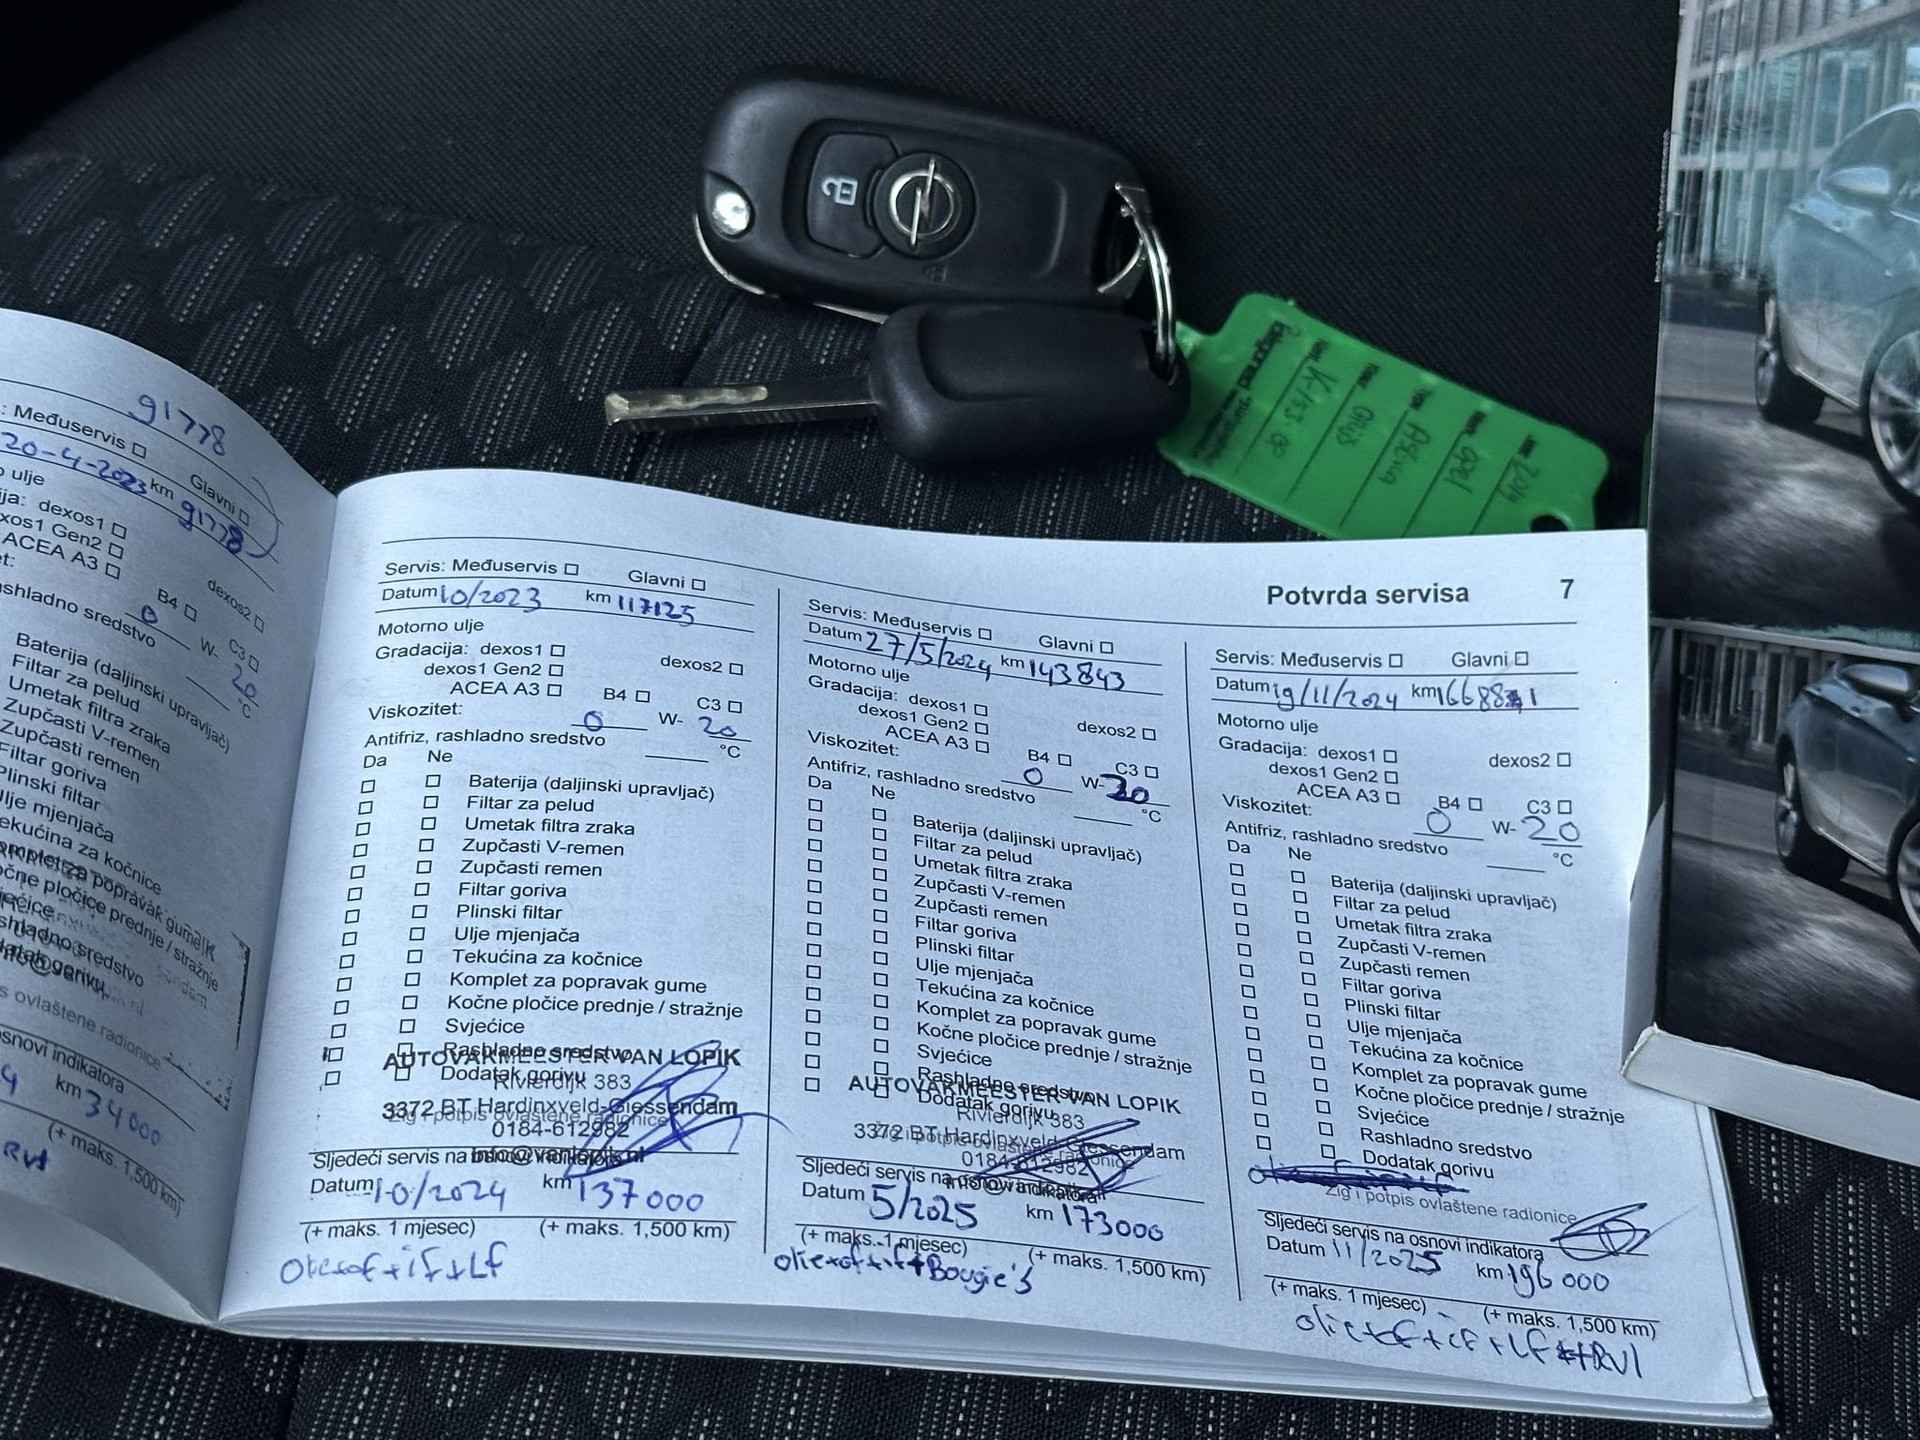 91778
: Međuservis Glavni
20-4-2023 km 91778
ulje
dexos1
dexos2
ACEA A3
B4
C3
0 W- 20
°C
Baterija (daljinski upravljač)
Filtar za pelud
Umetak filtra zraka
Zupčasti V-remen
Zupčasti remen
Filtar goriva
Plinski filtar
km 34000
(+ maks. 1,500 km)
Servis: Međuservis Glavni
Datum 10/2023 km 117125
Motorno ulje
Gradacija: dexos1
dexos2
dexos1 Gen2
ACEA A3 B4 C3
Viskozitet: 0 W- 20
Antifriz, rashladno sredstvo °C
Da Ne
Baterija (daljinski upravljač)
Filtar za pelud
Umetak filtra zraka
Zupčasti V-remen
Zupčasti remen
Filtar goriva
Plinski filtar
Ulje mjenjača
Tekućina za kočnice
Komplet za popravak gume
Kočne pločice prednje / stražnje
Svjećice
Rashladno sredstvo
AUTOVAKMEESTER VAN LOPIK
Dodatak gorivu
Rivierdijk 383
3372 BT Hardinxveld-Giessendam
Žig i potpis ovlaštene radionice
0184-612982
info@vanlopik.nl
Sljedeći servis na osnovi indikatora
Datum 10/2024 km 137000
(+ maks. 1 mjesec) (+ maks. 1,500 km)
Olie+of+if+Lf
Servis: Međuservis Glavni
Datum 27/5/2024 km 143843
Motorno ulje
Gradacija: dexos1
dexos2
dexos1 Gen2
ACEA A3 B4 C3
Viskozitet: 0 W- 20
Antifriz, rashladno sredstvo °C
Da Ne
Baterija (daljinski upravljač)
Filtar za pelud
Umetak filtra zraka
Zupčasti V-remen
Zupčasti remen
Filtar goriva
Plinski filtar
Ulje mjenjača
Tekućina za kočnice
Komplet za popravak gume
Kočne pločice prednje / stražnje
Svjećice
Rashladno sredstvo
AUTOVAKMEESTER VAN LOPIK
Dodatak gorivu
Rivierdijk 383
3372 BT Hardinxveld-Giessendam
Žig i potpis ovlaštene radionice
0184-612982
info@vanlopik.nl
Sljedeći servis na osnovi indikatora
Datum 5/2025 km 173000
(+ maks. 1 mjesec) (+ maks. 1,500 km)
olie+of+if+Bougie's
Potvrda servisa 7
Servis: Međuservis Glavni
Datum 19/11/2024 km
Motorno ulje
Gradacija: dexos1
dexos2
dexos1 Gen2
ACEA A3 B4 C3
Viskozitet: 0 W- 20
Antifriz, rashladno sredstvo °C
Da Ne
Baterija (daljinski upravljač)
Filtar za pelud
Umetak filtra zraka
Zupčasti V-remen
Zupčasti remen
Filtar goriva
Plinski filtar
Ulje mjenjača
Tekućina za kočnice
Komplet za popravak gume
Kočne pločice prednje / stražnje
Svjećice
Rashladno sredstvo
Dodatak gorivu
Žig i potpis ovlaštene radionice
Sljedeći servis na osnovi indikatora
Datum 11/2025 km 196000
(+ maks. 1 mjesec) (+ maks. 1,500 km)
olie+of+if+Lf+RVl